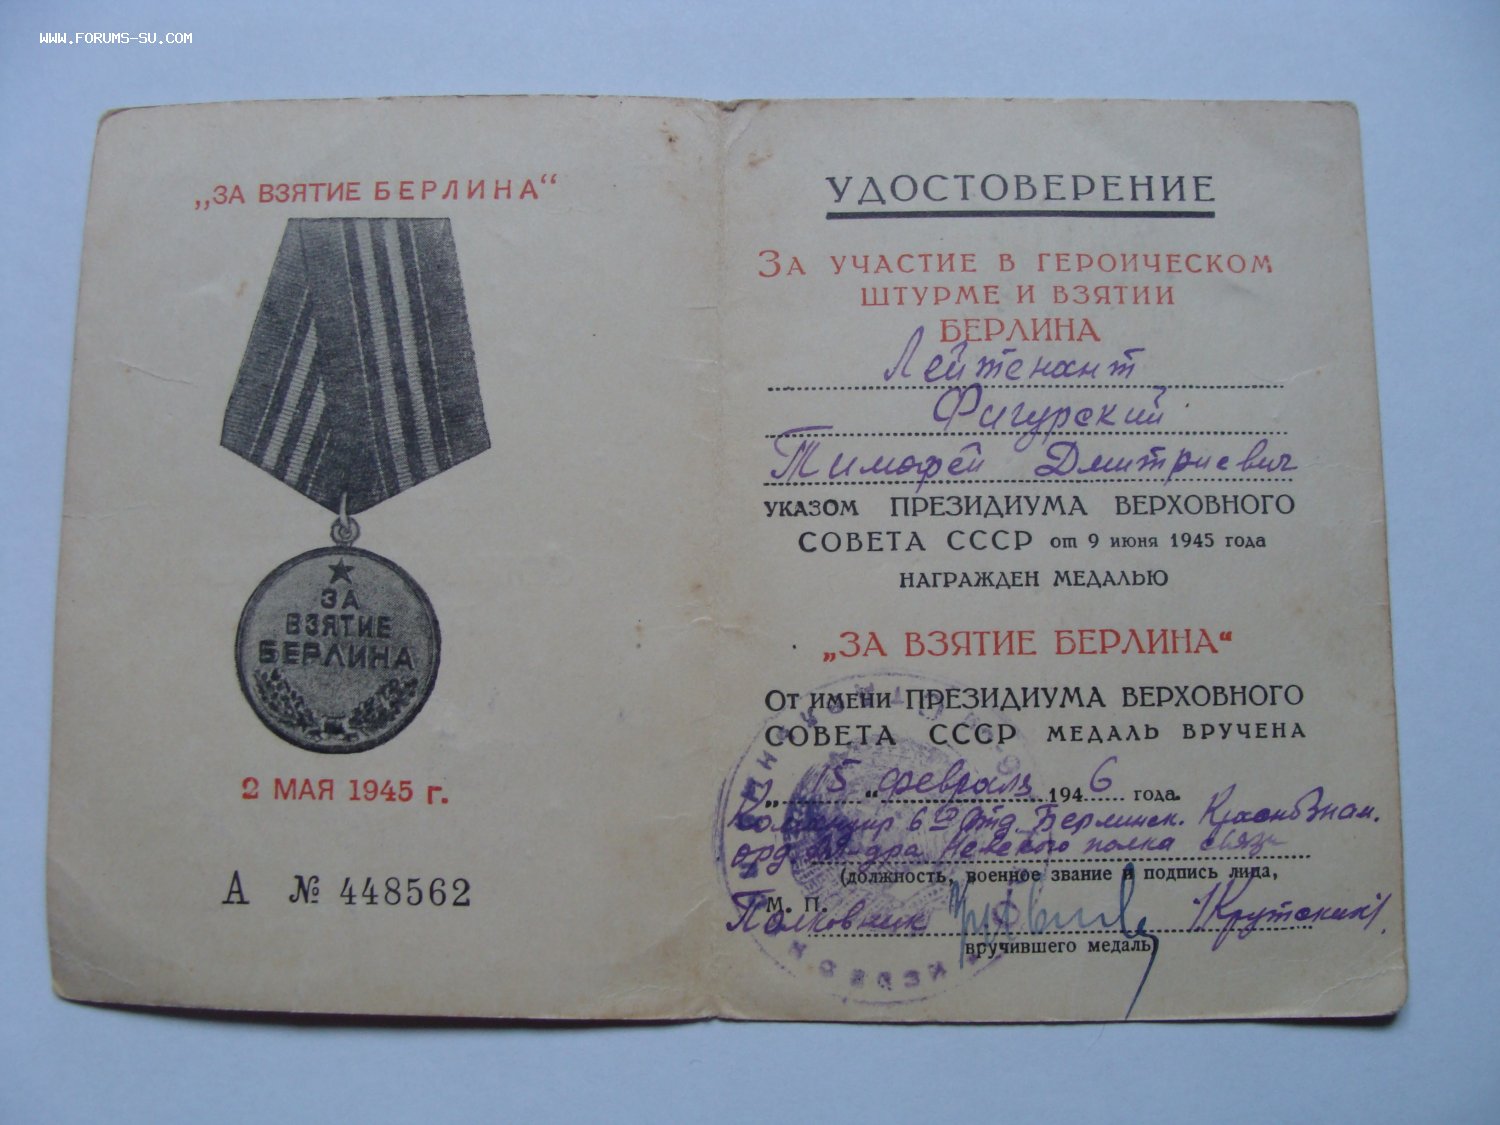 WWW.FORUMS-SU.COM
„ЗА ВЗЯТИЕ БЕРЛИНА“
ЗА
ВЗЯТИЕ
БЕРЛИНА
2 МАЯ 1945 г.
А № 448562
УДОСТОВЕРЕНИЕ
ЗА УЧАСТИЕ В ГЕРОИЧЕСКОМ
ШТУРМЕ И ВЗЯТИИ
БЕРЛИНА
Лейтенант
Фигурский
Тимофей Дмитриевич
УКАЗОМ ПРЕЗИДИУМА ВЕРХОВНОГО
СОВЕТА СССР от 9 июня 1945 года
НАГРАЖДЕН МЕДАЛЬЮ
„ЗА ВЗЯТИЕ БЕРЛИНА“
ОТ ИМЕНИ ПРЕЗИДИУМА ВЕРХОВНОГО
СОВЕТА СССР МЕДАЛЬ ВРУЧЕНА
„15“ февраля 1946 года.
Командир 6 Отд. Берлинск. Краснознам.
орд. Ал-дра Невского полка связи
(должность, военное звание и подпись лица,
М. П.
Полковник /Крутский/.
вручившего медаль)